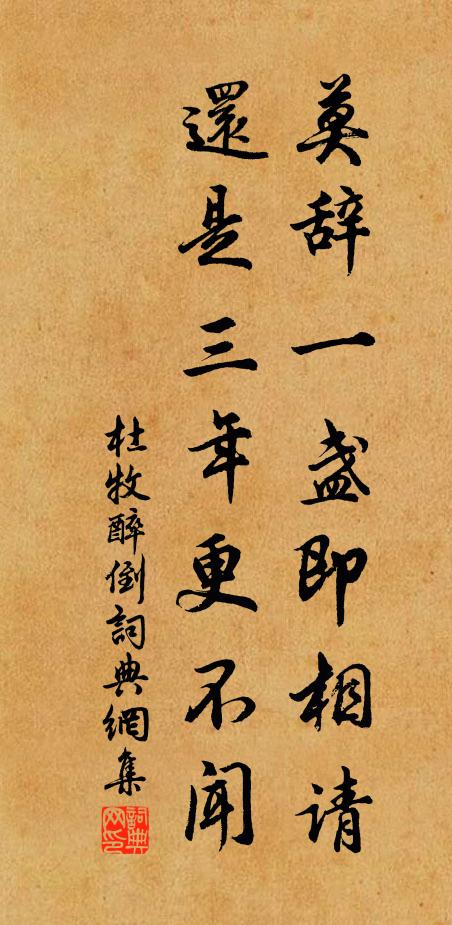 莫辞一盏即相请
還是三年更不聞
杜牧醉倒詞典網集
詞典網印